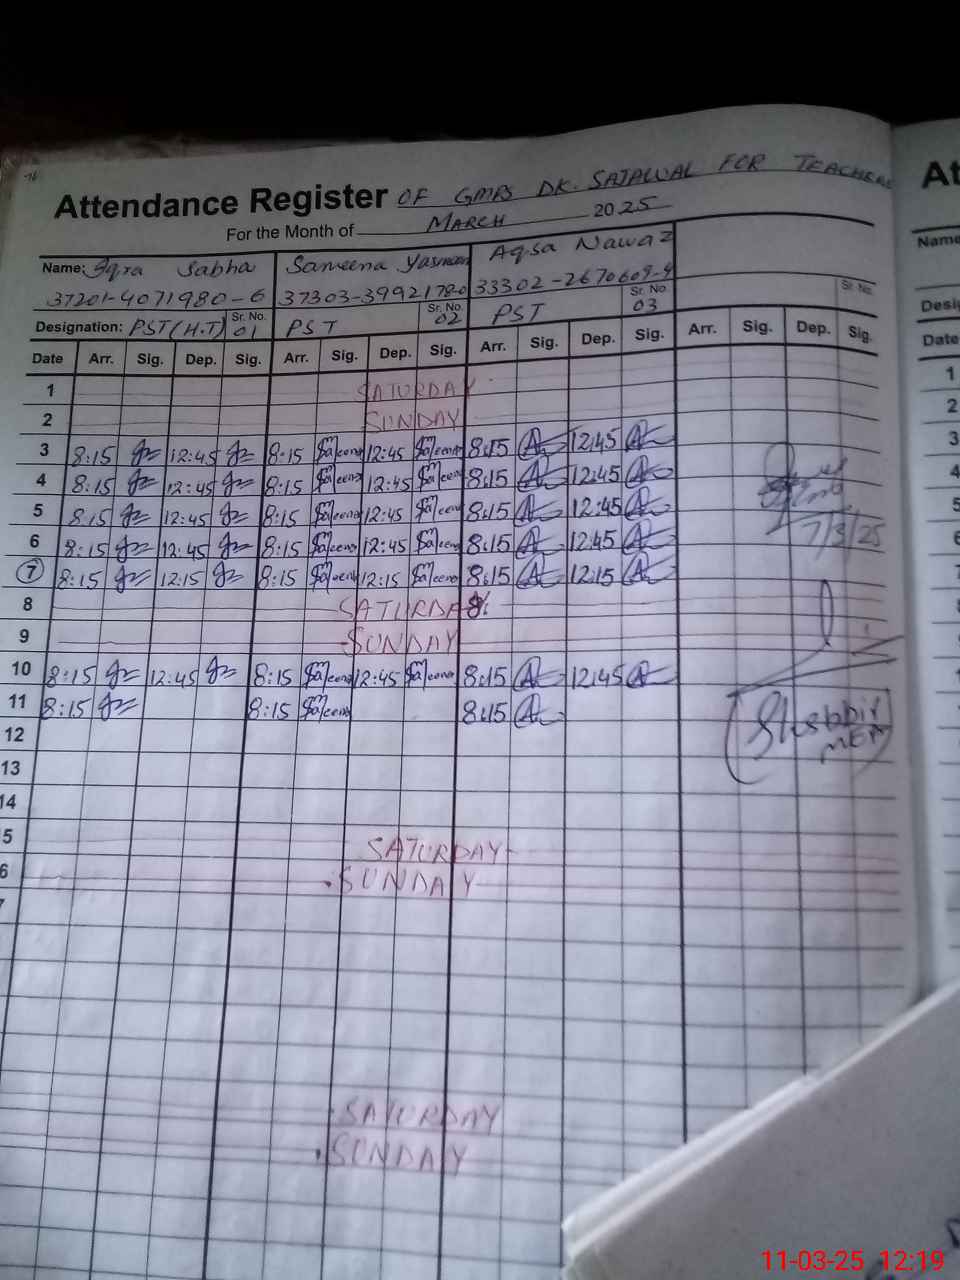 16
Attendance Register OF GMPS DK. SAJAWAL FOR TEACHERS
For the Month of MARCH 2025
Name: Iqra Sabha Sameena Yasmeen Aqsa Nawaz
37201-4071980-6 37303-3992178-0 33302-2670609-4
Sr. No. Sr. No. Sr. No. Sr. No.
Designation: PST (H.T) 01 PST 02 PST 03
Date Arr. Sig. Dep. Sig. Arr. Sig. Dep. Sig. Arr. Sig. Dep. Sig. Arr. Sig. Dep. Sig.
1 SATURDAY
2 SUNDAY
3 8:15 12:45 8:15 Sameena 12:45 Sameena 8:15 12:45
4 8:15 12:45 8:15 Sameena 12:45 Sameena 8:15 12:45
5 8:15 12:45 8:15 Sameena 12:45 Sameena 8:15 12:45
6 8:15 12:45 8:15 Sameena 12:45 Sameena 8:15 12:45
7/3/25
7 8:15 12:15 8:15 Sameena 12:15 Sameena 8:15 12:15
8 SATURDAY
9 SUNDAY
10 8:15 12:45 8:15 Sameena 12:45 Sameena 8:15 12:45
11 8:15 8:15 Sameena 8:15
(Shabbir
MEA)
12
13
14
5 SATURDAY
6 SUNDAY
7
SATURDAY
SUNDAY
At
Name
Desig
Date
1
2
3
4
5
6
7
11-03-25 12:19